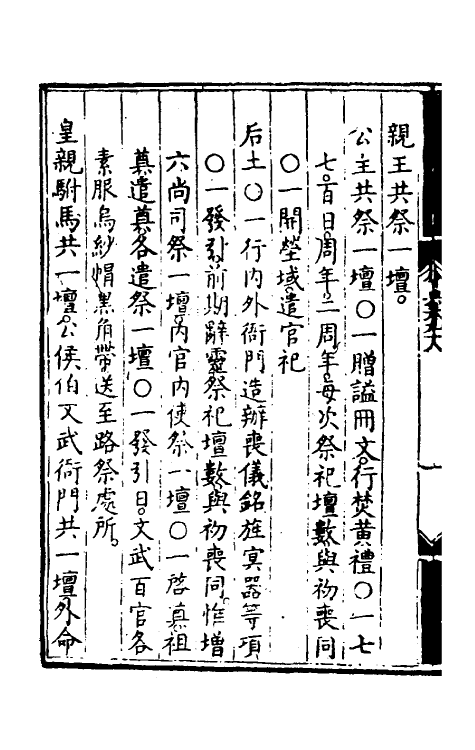 親王共祭一壇。
公主共祭一壇○一贈謚冊文。行焚黃禮○一七
七。百日。周年。二周年。每次祭祀壇數與初喪同
○一開塋域。遣官祀
后土○一行內外衙門造辦喪儀銘旌冥器等項
○一發引。前期辭靈祭祀壇數與初喪同。惟增
六尚司祭一壇。內官內使祭一壇○一啓奠祖
奠遣奠各遣祭一壇○一發引日。文武百官各
素服烏紗帽黑角帶送至路祭處所。
皇親駙馬共一壇。公侯伯文武衙門共一壇。外命